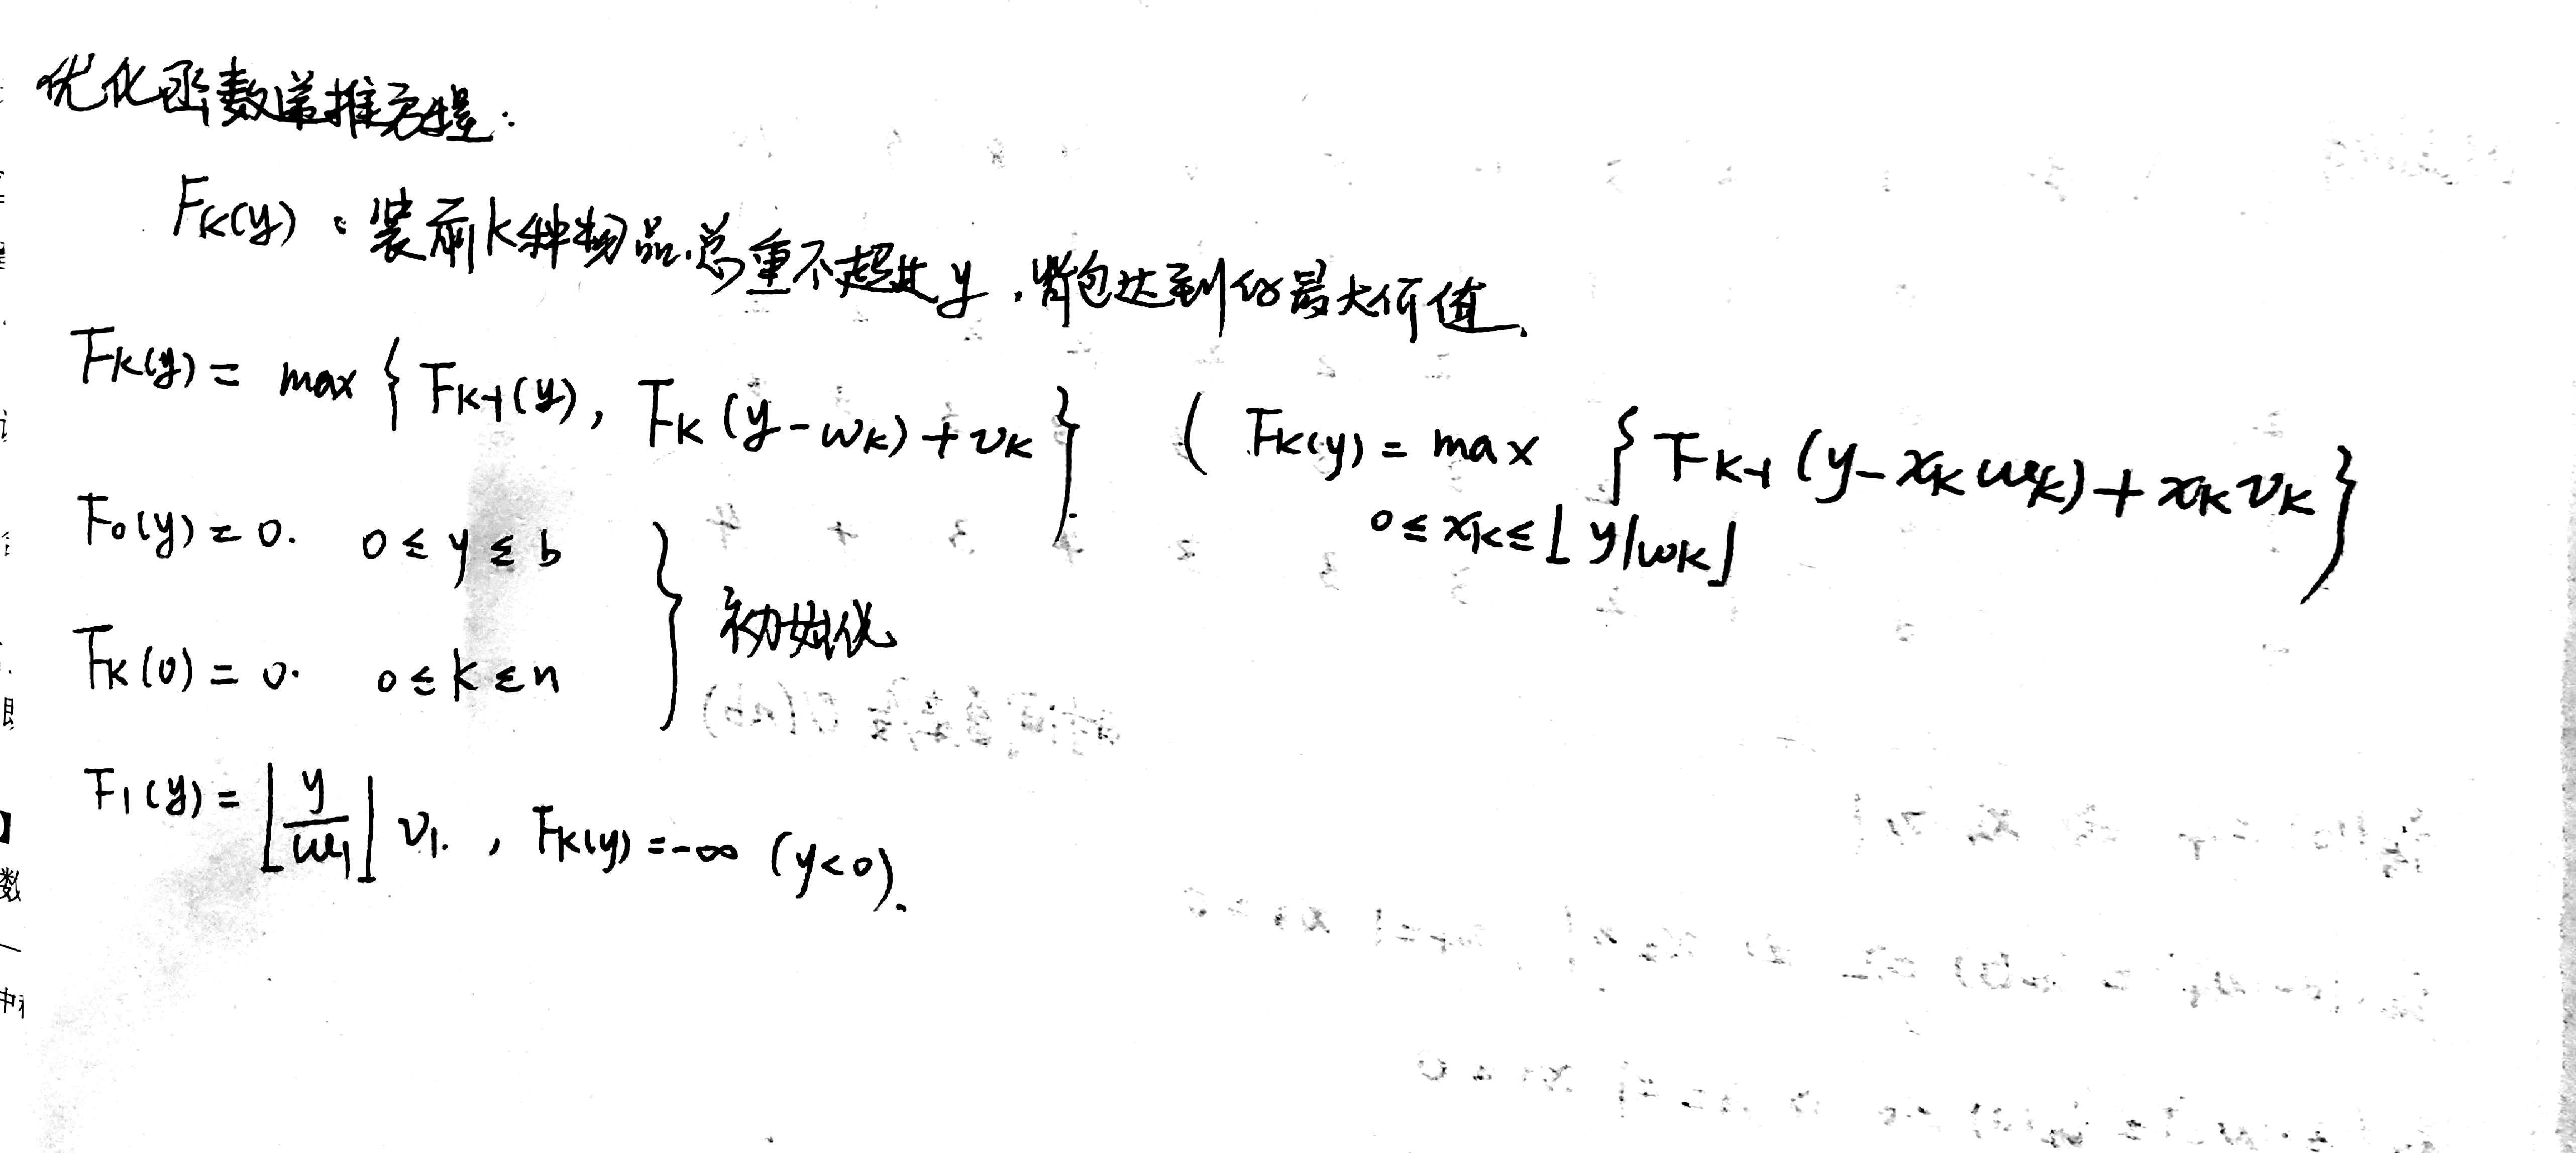 优化函数递推方程:
Fk(y):装前k种物品.总重不超过y,背包达到的最大价值.
Fk(y) = max { Fk-1(y), Fk(y-wk)+vk } ( Fk(y) = max { Fk-1(y-xkwk)+xkvk }
0≤xk≤⌊y/wk⌋
F0(y)=0. 0≤y≤b
初始化
Fk(0)=0. 0≤k≤n
F1(y)=⌊y/w1⌋v1. , Fk(y)=-∞ (y<0).